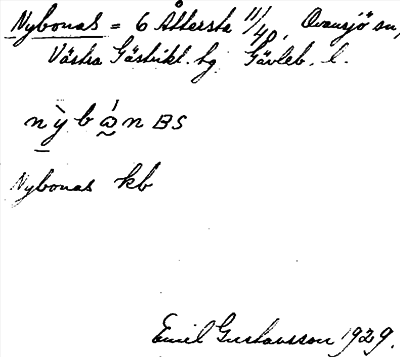 Nybonas = 6 Åttersta 11/40, Ovansjö sn,
Västra Gästrikl. hg Gävleb. l.
nỳ̠bώ̰nBS
Nybonas kb
Emil Gustavsson 1929.